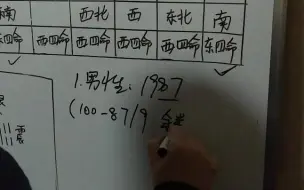 南 西北 西 东北 南
西四命 西四命 西四命 西四命 东四命
1.男性:1987
(100-87/9 余
震